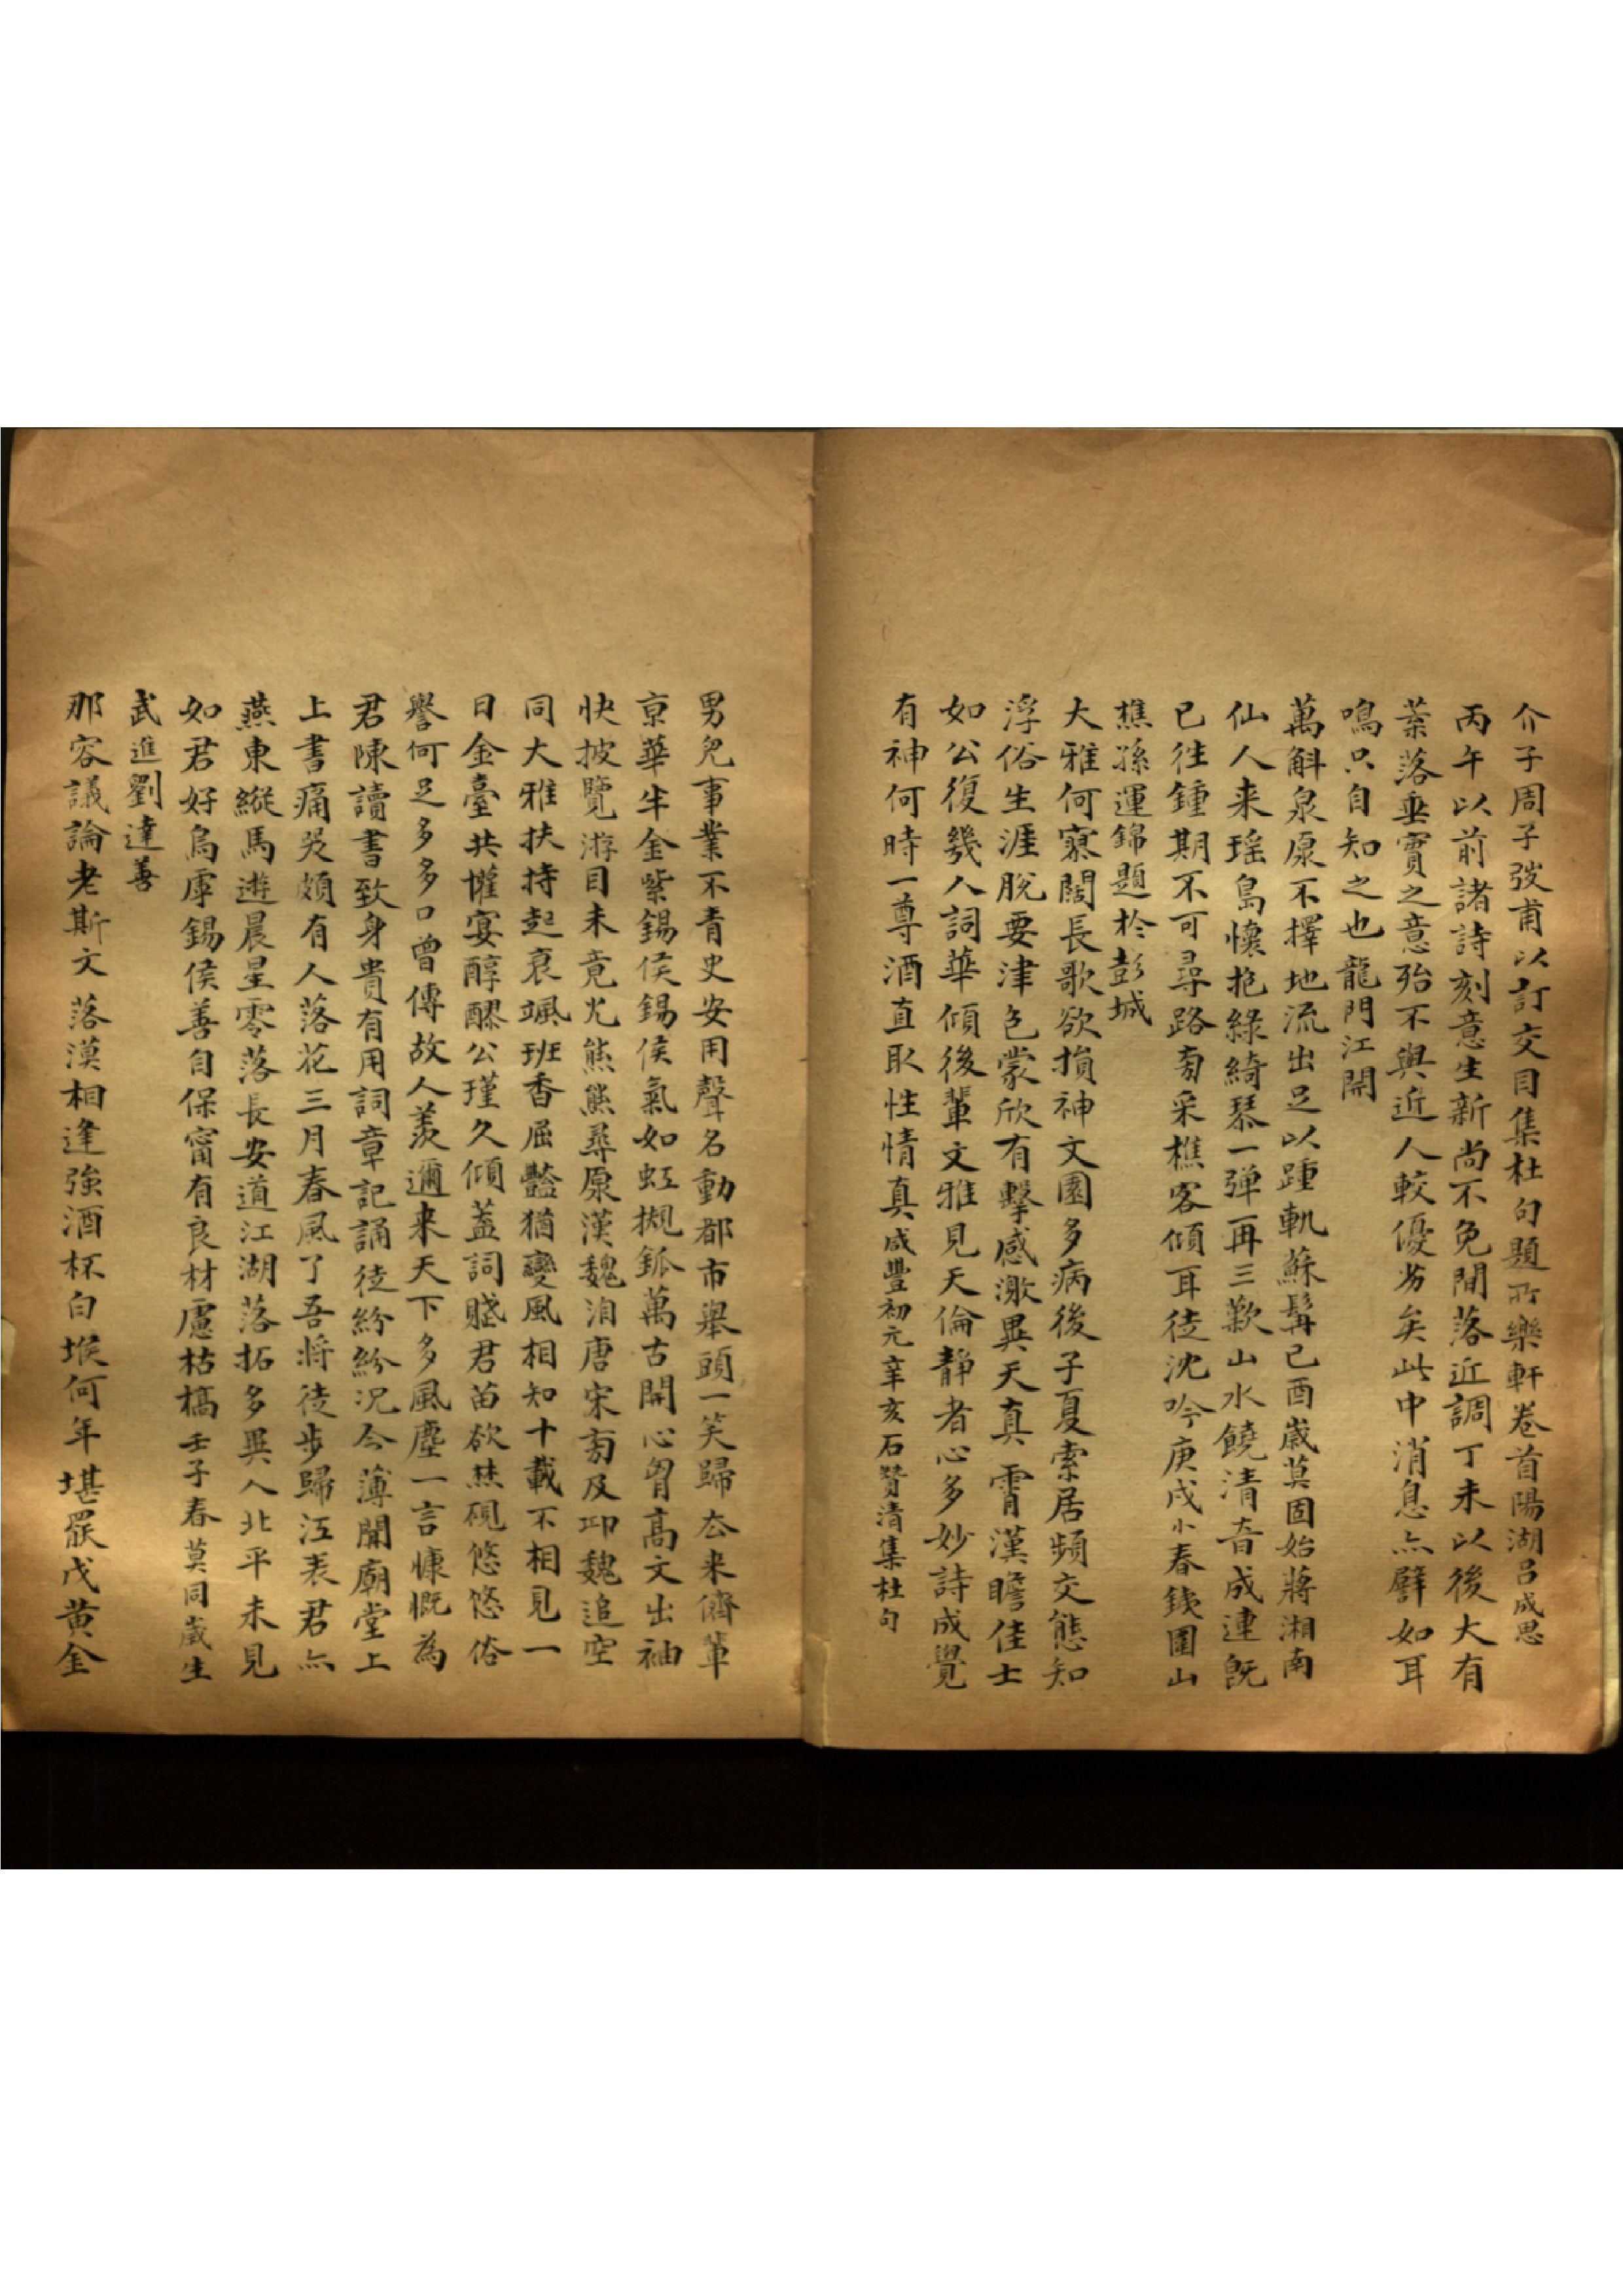 介子周子弢甫以訂交目集杜句題所樂軒卷首陽湖呂成思
丙午以前諸詩刻意生新尚不免閒落近調丁未以後大有
葉落垂實之意殆不與近人較優劣矣此中消息亦譬如耳
鳴只自知之也龍門江開
萬斛泉原不擇地流出足以踵軌蘇髯己酉歲莫固始蔣湘南
仙人来瑤島懷抱綠綺琴一弹再三歎山水饒清音成連旣
已往鍾期不可尋路旁采樵客傾耳徒沈吟庚戌小春錢圍山
樵孫運錦題於彭城
大雅何寥闊長歌欲損神文園多病後子夏索居頻交態知
浮俗生涯脫要津色蒙欣有擊感激異天真霄漢瞻佳士
如公復幾人詞華傾後輩文雅見天倫靜者心多妙詩成覺
有神何時一尊酒直取性情真咸豐初元辛亥石贊清集杜句
男兒事業不青史安用聲名動都市舉頭一笑歸去来儕輩
京華半金紫錫侯錫侯氣如虹摫𨥏萬古開心胷高文出袖
快披覽游目未竟光熊熊尋原漢魏洎唐宋旁及邛魏追空
同大雅扶持起衰颯班香屈豔猶變風相知十載不相見一
日金臺共懽宴醇醪公瑾久傾蓋詞賤君苗欲焚硯悠悠俗
譽何足多多口曾傳故人羨邇来天下多風塵一言慷慨為
君陳讀書致身貴有用詞章記誦徒紛紛况今薄開廟堂上
上書痛哭頗有人落花三月春風了吾将徒步歸江表君亦
燕東縱馬遊晨星零落長安道江湖落拓多異人北平未見
如君好烏虖錫侯善自保甯有良材慮枯槁壬子春莫同歲生
武進劉達善
那容議論老斯文落漠相逢強酒杯白堠何年堪罷戍黄金